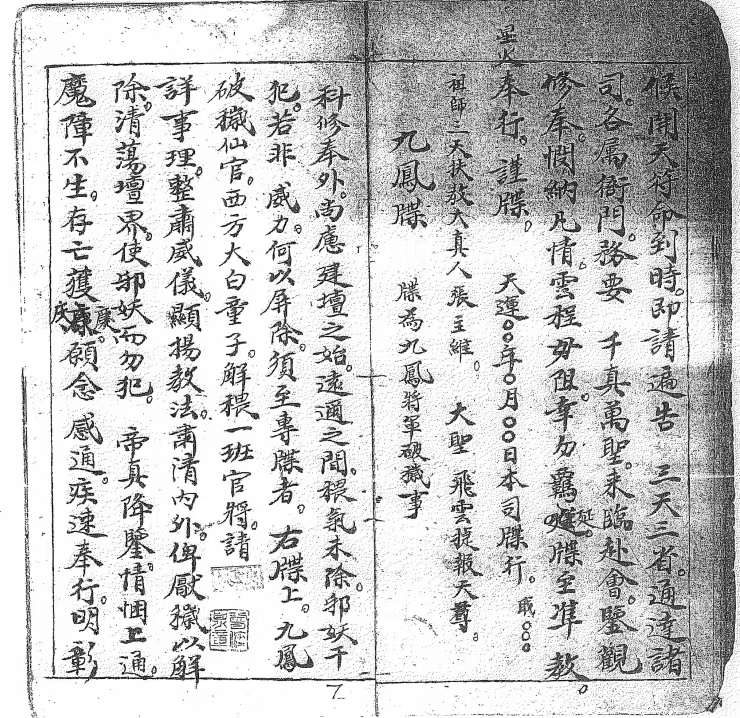 候開天符命到時。即請遍告 三天三省。通達諸
司。各屬衙門。務要 千真萬聖。來臨赴會。鑒觀
修奉。憫納凡情。雲程毋阻。幸勿羈延。牒至準 教。
星火奉行。謹牒。 天運〇〇年〇月〇〇日本司牒行。
祖師三天扶教大真人張主維。 大聖 飛雲捷報天尊。
九鳳牒 牒為九鳳將軍破穢事
科修奉外。尚慮建壇之始。遠邇之間。穢氣未除。邪妖干
犯。若非 威力。何以屏除。須至專牒者。 右牒上。九鳳
破穢仙官。西方大白童子。解穢一班官將。請
詳事理。整肅威儀。顯揚教法。肅清內外。俾厭穢以解
除。清蕩壇界。使邪妖而勿犯。 帝真降鑒。情悃上通。
魔障不生。存亡獲慶。願念 感通。疾速奉行。明彰
7